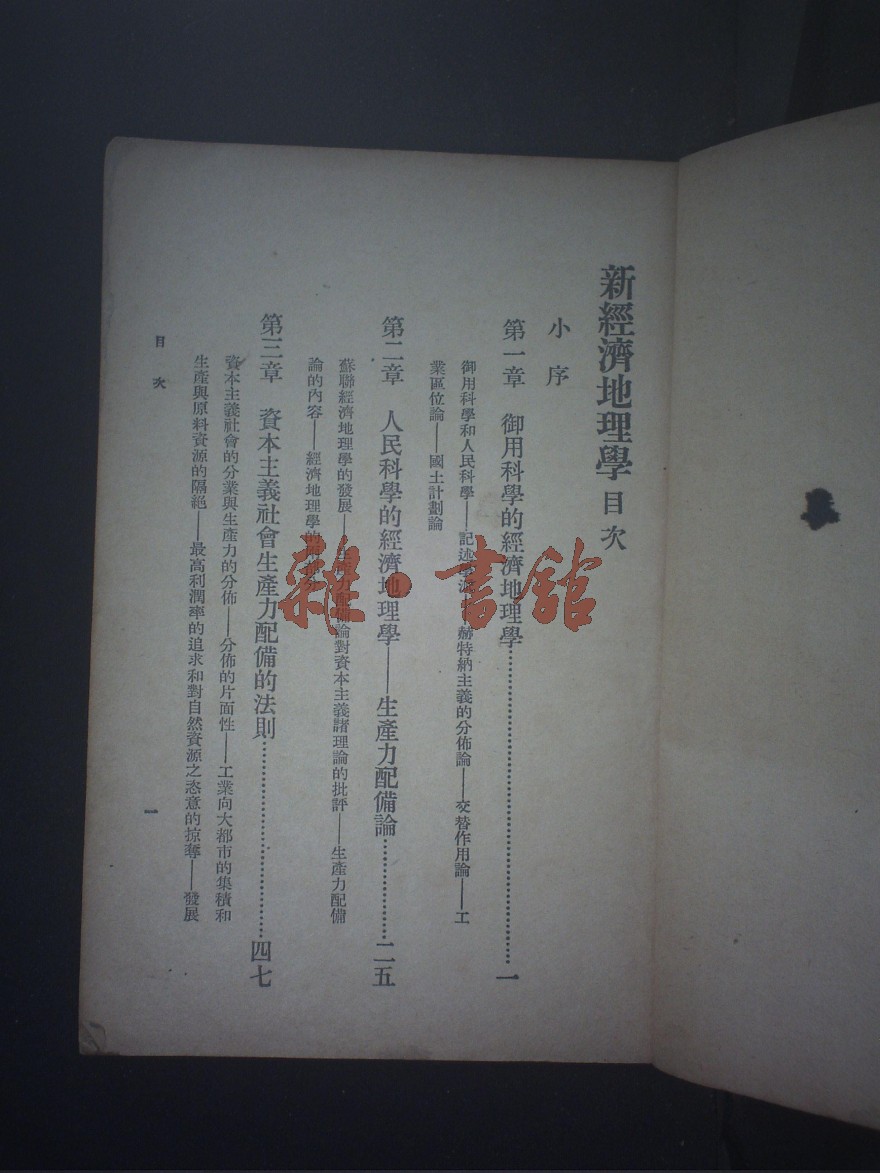 新經濟地理學 目次
小序
第一章 御用科學的經濟地理學……一
御用科學和人民科學——記述 赫特納主義的分佈論——交替作用論——工
業區位論——國土計劃論
第二章 人民科學的經濟地理學——生產力配備論……二五
蘇聯經濟地理學的發展——生產力配備論對資本主義諸理論的批評——生產力配備
論的內容——經濟地理學的
第三章 資本主義社會生產力配備的法則……四七
資本主義社會的分業與生產力的分佈——分佈的片面性——工業向大都市的集積和
生產與原料資源的隔絕——最高利潤率的追求和對自然資源之恣意的掠奪——發展
目次
一
雜·書館